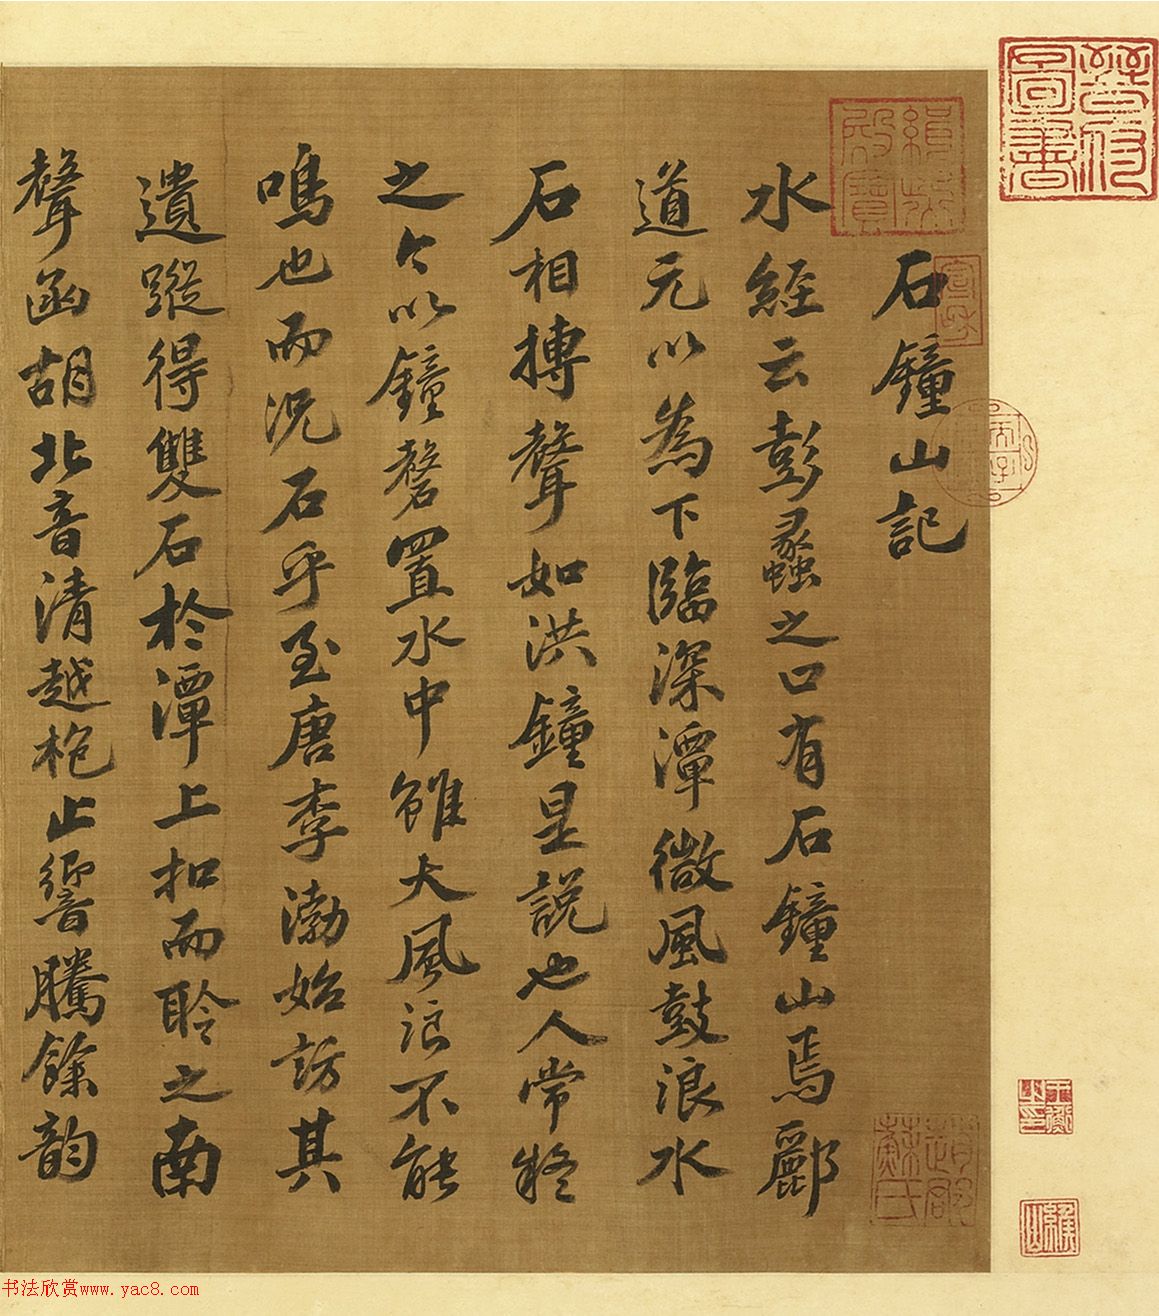 石鐘山記
水經云彭蠡之口有石鐘山焉酈
道元以為下臨深潭微風鼓浪水
石相搏聲如洪鐘是說也人常疑
之今以鐘磬置水中雖大風浪不能
鳴也而況石乎至唐李渤始訪其
遺蹤得雙石於潭上扣而聆之南
聲函胡北音清越枹止響騰餘韵
晉府圖書
緝熙殿寶
趙郡蘇氏
书法欣赏www.yac8.com